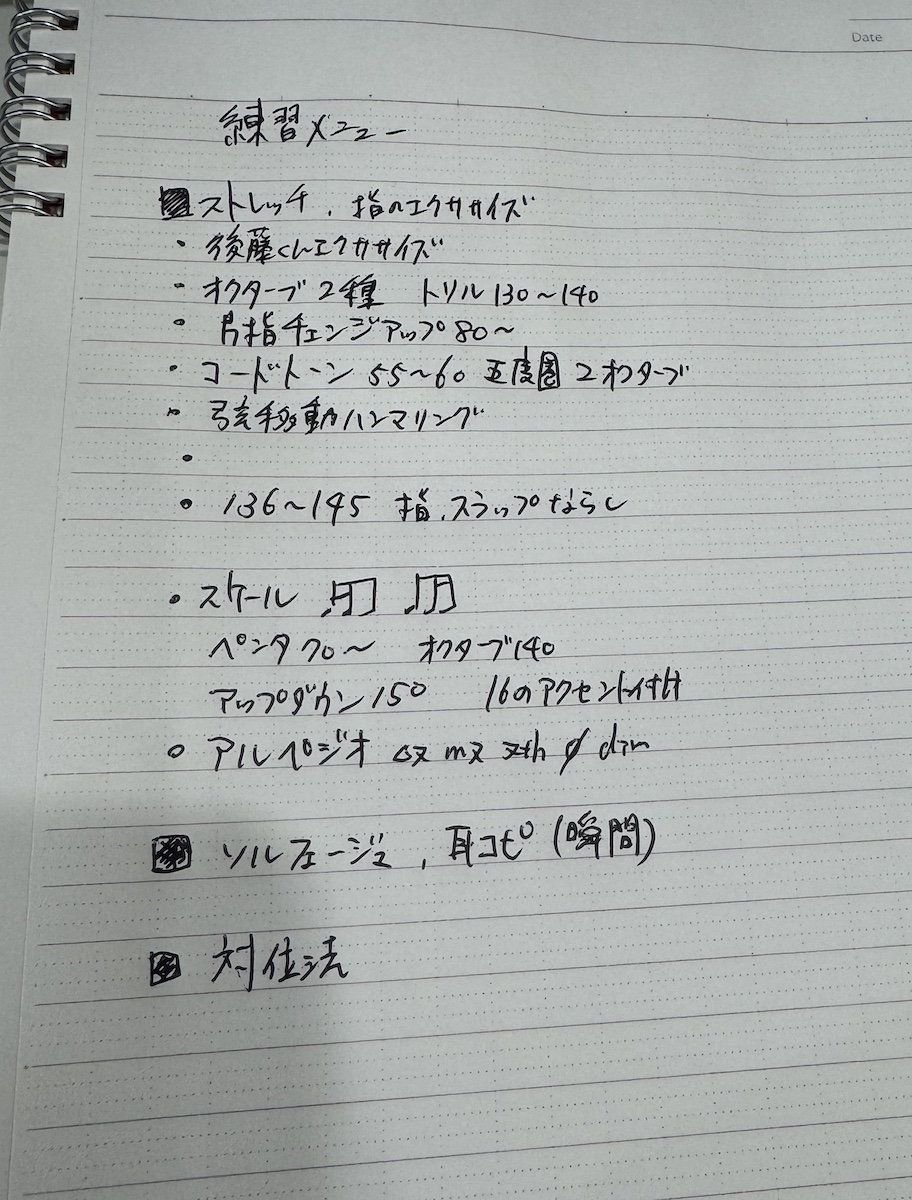 Date
練習メニュー
■ストレッチ、指のエクササイズ
・後藤くんエクササイズ
・オクターブ2種 トリル130〜140
・片指チェンジアップ80〜
・コードトーン 55〜60 五度圏 2オクターブ
・弦移動ハンマリング
・
・136〜145 指、スラップならし
・スケール
ペンタ70〜 オクターブ140
アップダウン150 16のアクセント付け
○アルペジオ △7 m7 7th ø dim
■ソルフェージュ、耳コピ(瞬間)
■対位法